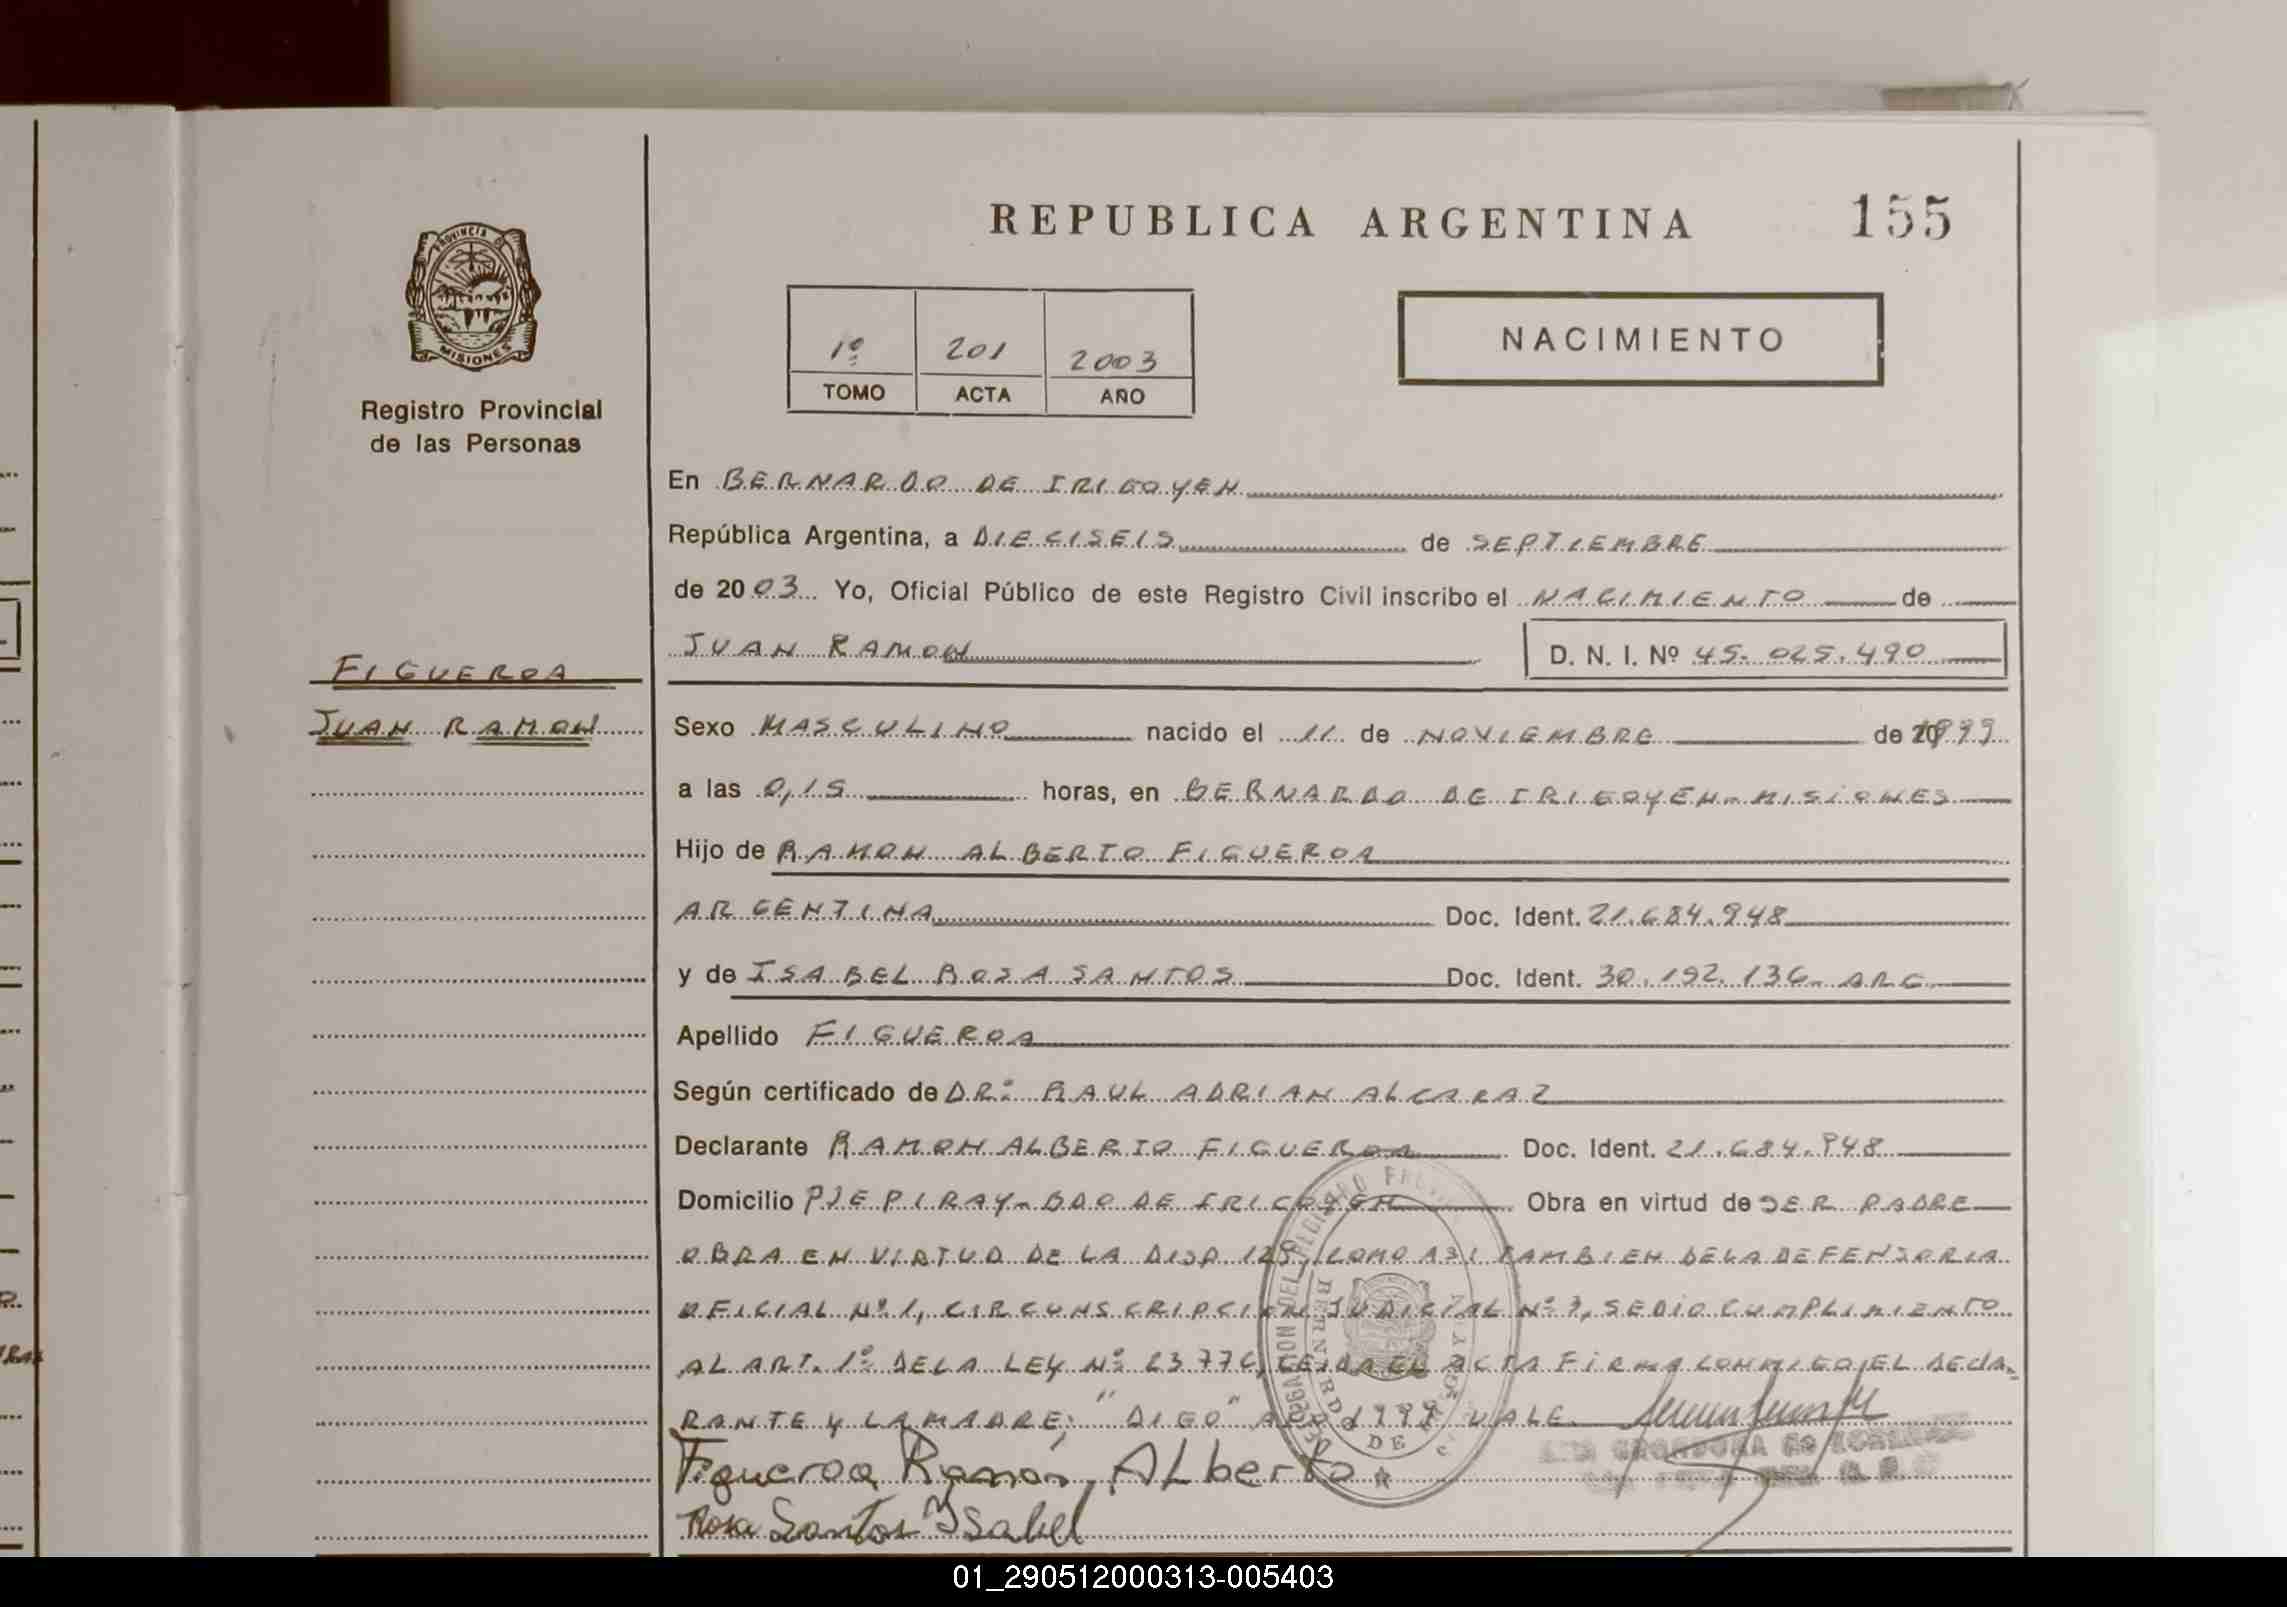 REPUBLICA ARGENTINA 155
PROVINCIA DE
MISIONES
Registro Provincial
de las Personas
NACIMIENTO
1º 201 2003
TOMO ACTA AÑO
En BERNARDO DE IRIGOYEN
República Argentina, a DIECISEIS de SEPTIEMBRE
de 2003 Yo, Oficial Público de este Registro Civil inscribo el NACIMIENTO de
JUAN RAMON D. N. I. Nº 45.025.490
FIGUEROA
JUAN RAMON
Sexo MASCULINO nacido el 11 de NOVIEMBRE de 1999
a las 0,15 horas, en BERNARDO DE IRIGOYEN - MISIONES
Hijo de RAMON ALBERTO FIGUEROA
ARGENTINA Doc. Ident. 21.684.948
y de ISABEL ROSA SANTOS Doc. Ident. 30.192.136 - ARG.
Apellido FIGUEROA
Según certificado de DR: RAUL ADRIAN ALCARAZ
Declarante RAMON ALBERTO FIGUEROA Doc. Ident. 21.684.948
Domicilio PJE PIRAY - BDO DE IRIGOYEN Obra en virtud de SER PADRE
OBRA EN VIRTUD DE LA DISP. 125, COMO ASI TAMBIEN DE LA DEFENSORIA
OFICIAL Nº 1, CIRCUNSCRIPCION JUDICIAL Nº 3, SE DIO CUMPLIMIENTO
AL ART. 1º DE LA LEY Nº 23776, LEIDA EL ACTA FIRMA CONMIGO, EL DECLA-
RANTE Y LA MADRE; "DIGO" AÑO 1999 VALE.
Figueroa Ramón, ALberto
Rosa Santos Isabel
01_290512000313-005403